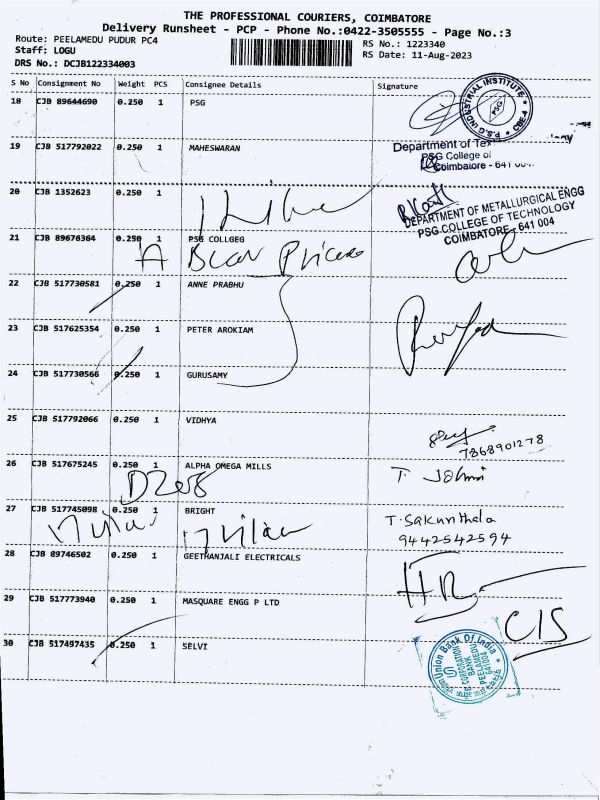 THE PROFESSIONAL COURIERS, COIMBATORE
Delivery Runsheet - PCP - Phone No.:0422-3505555 - Page No.:3
Route: PEELAMEDU PUDUR PC4
RS No.: 1223340
Staff: LOGU
RS Date: 11-Aug-2023
DRS No.: DCJB122334003
S No Consignment No Weight PCS Consignee Details Signature
18 CJB 89644690 0.250 1 PSG
P.S.G INDUSTRIAL INSTITUTE
PSG
CBE-4
19 CJB 517792022 0.250 1 MAHESWARAN
Department of Tex
PSG College of
Coimbatore - 641 004.
20 CJB 1352623 0.250 1
DEPARTMENT OF METALLURGICAL ENGG
PSG COLLEGE OF TECHNOLOGY
COIMBATORE - 641 004
21 CJB 89676364 0.250 1 PSG COLLGEG
A
22 CJB 517730581 0.250 1 ANNE PRABHU
23 CJB 517625354 0.250 1 PETER AROKIAM
24 CJB 517730566 0.250 1 GURUSAMY
25 CJB 517792066 0.250 1 VIDHYA
7868901278
26 CJB 517675245 0.250 1 ALPHA OMEGA MILLS
T.
27 CJB 517745098 0.250 1 BRIGHT
T. Sakunthala
9442542594
28 CJB 89746502 0.250 1 GEETHANJALI ELECTRICALS
29 CJB 517773940 0.250 1 MASQUARE ENGG P LTD
CIS
30 CJB 517497435 0.250 1 SELVI
Union Bank Of India
CORPORATION
BANK
PEELAMEDU
641004